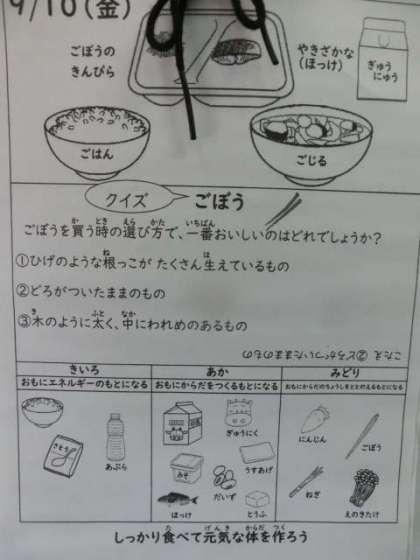 9/10(金)
ごぼうの
きんぴら
やきざかな
(ほっけ)
ぎゅう
にゅう
ごはん
ごじる
クイズ
ごぼう
ごぼうを買う時の選び方で、一番おいしいのはどれでしょうか?
①ひげのような根っこが たくさん生えているもの
②どろがついたままのもの
③木のように太く、中にわれめのあるもの
こたえ ②どろがついたままのもの
きいろ
あか
みどり
おもにエネルギーのもとになる
おもにからだをつくるもとになる
おもにからだのちょうしをととのえるもとになる
さとう
あぶら
ぎゅうにく
みそ
うすあげ
ほっけ
だいず
とうふ
にんじん
ごぼう
ねぎ
えのきたけ
しっかり食べて元気な体を作ろう